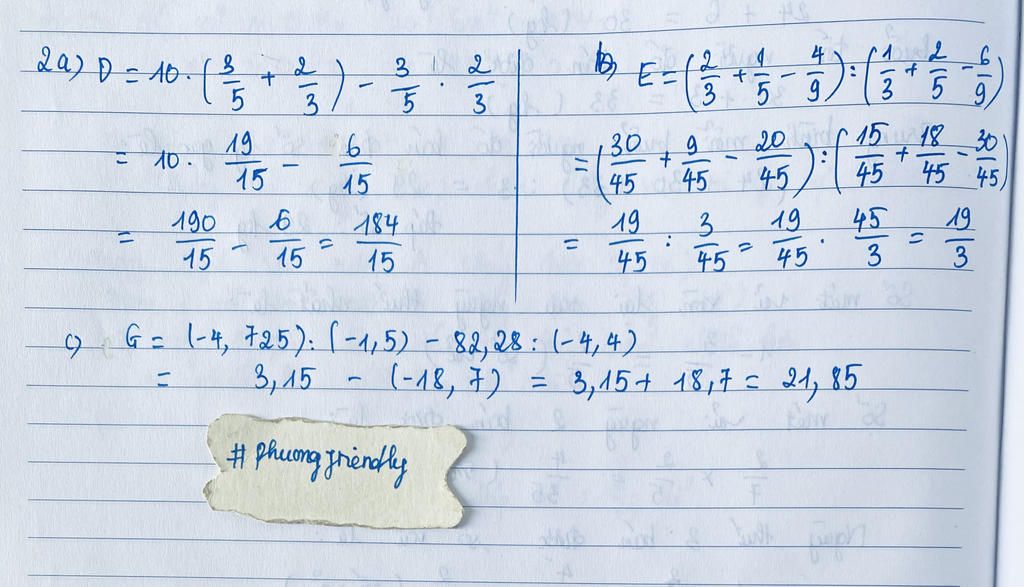 2a) D = 10 · (3/5 + 2/3) - 3/5 · 2/3
= 10 · 19/15 - 6/15
= 190/15 - 6/15 = 184/15
b) E = (2/3 + 1/5 - 4/9) : (1/3 + 2/5 - 6/9)
= (30/45 + 9/45 - 20/45) : (15/45 + 18/45 - 30/45)
= 19/45 : 3/45 = 19/45 · 45/3 = 19/3
c) G = (-4,725) : (-1,5) - 82,28 : (-4,4)
= 3,15 - (-18,7) = 3,15 + 18,7 = 21,85
# phuongfriendly